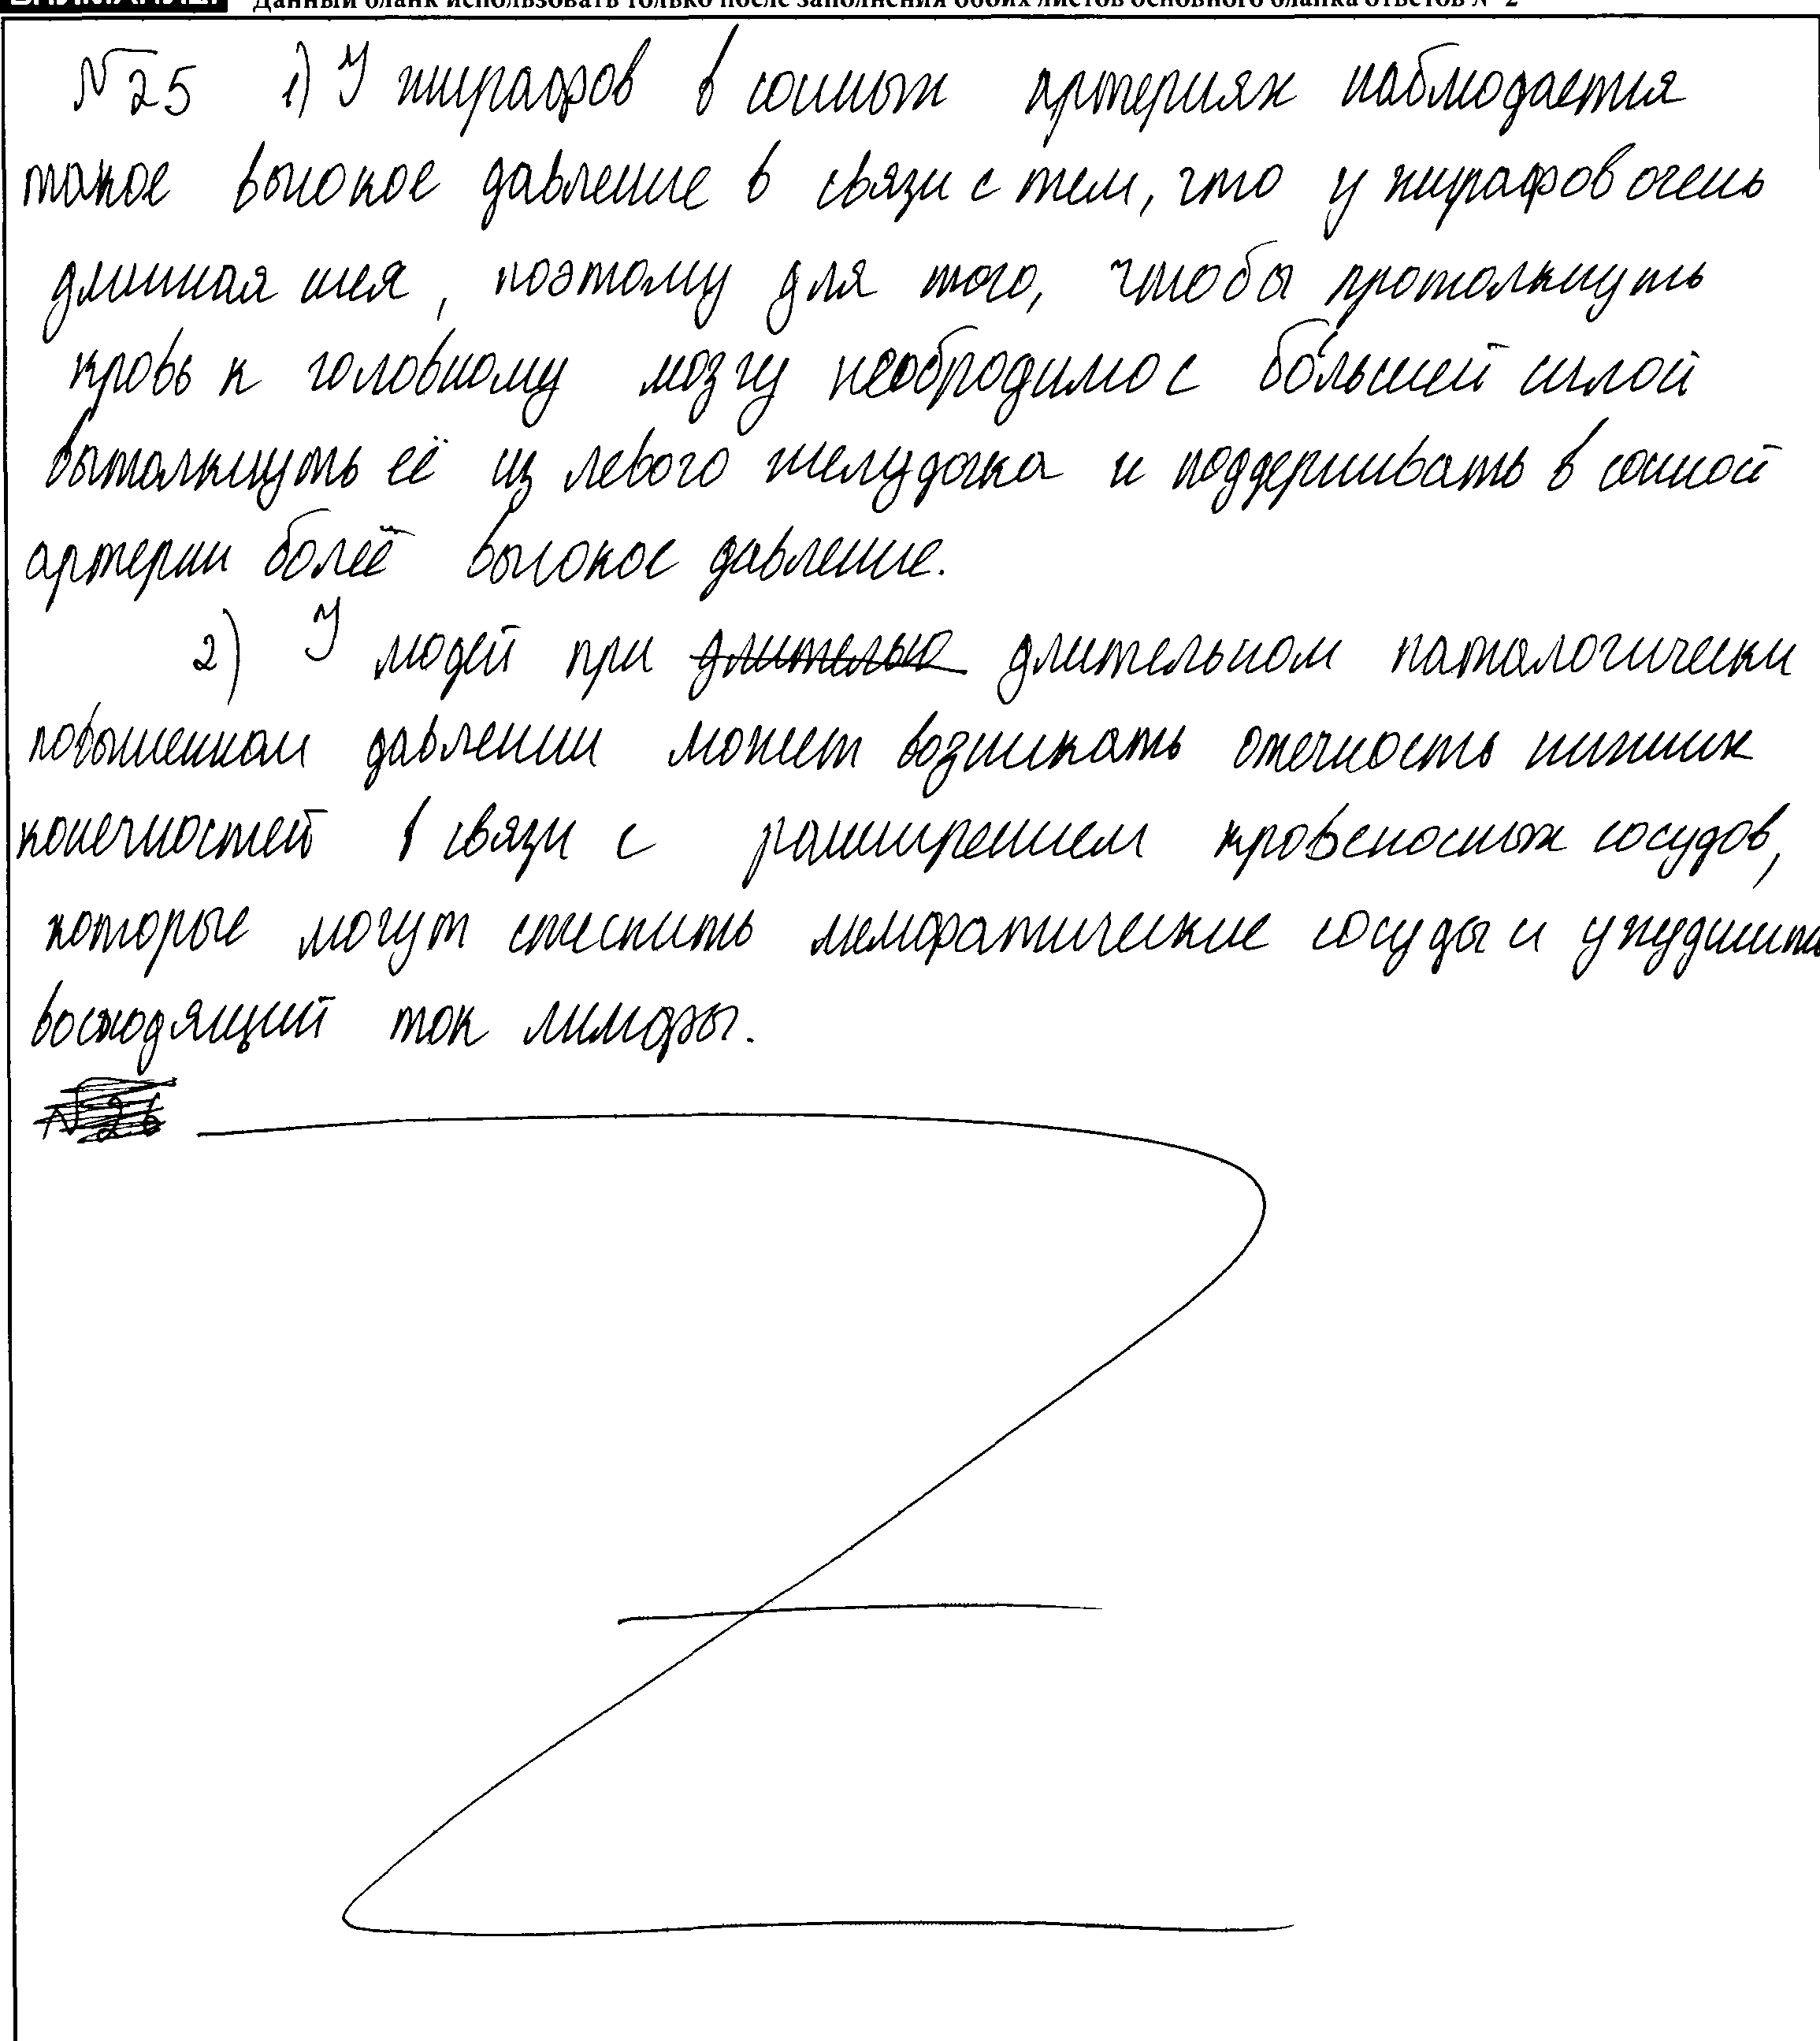 Данный бланк использовать только после заполнения обоих листов основного бланка ответов № 2
№25 1) У жирафов в сонных артериях наблюдается
такое высокое давление в связи с тем, что у жирафов очень
длинная шея, поэтому для того, чтобы протолкнуть
кровь к головному мозгу необходимо с бо́льшей силой
вытолкнуть её из левого желудочка и поддерживать в сонной
артерии более высокое давление.
2) У людей при длительно длительном паталогически
повышенном давлении может возникать отечность нижних
конечностей в связи с расширением кровеносных сосудов,
которые могут стеснить лимфатические сосуды и ухудшить
восходящий ток лимфы.
№26